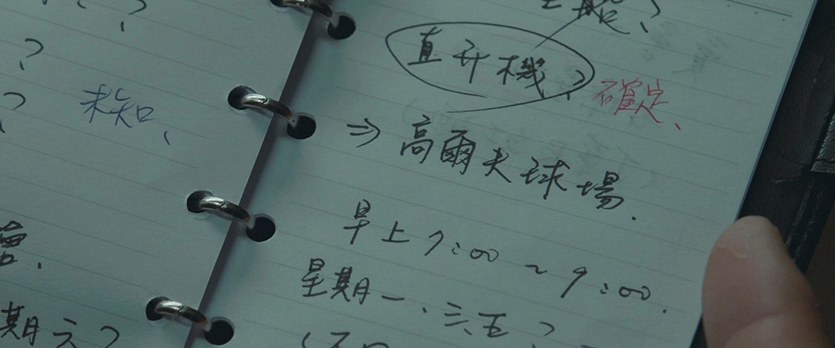 ?
?
? 未知、
期六?
直升機? 確定、
⇒ 高爾夫球場.
早上7:00~9:00.
星期一、三、五?